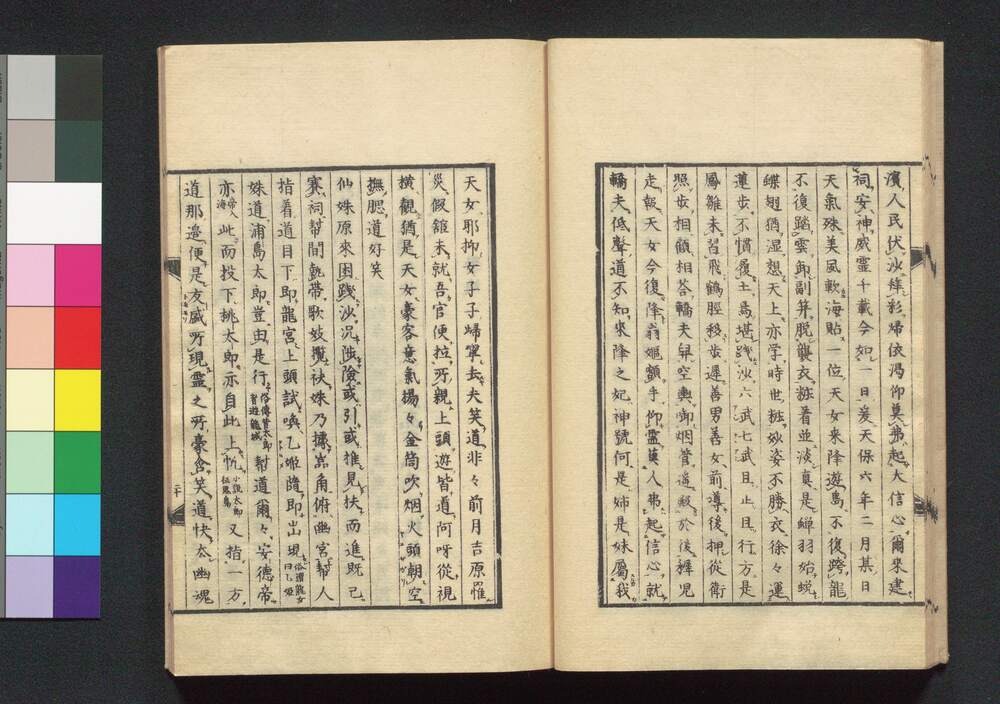 濱、人民伏沙、拜影歸依渇仰莫弗起大信心爾來建
祠安神威靈千載今如一日爰天保六年二月某日
天氣殊美風軟海貼一位天女来降遊島不復跨龍
不復蹈雲卸副笄脱襲衣粧着並淡眞是蟬羽始蛻
蝶翅猶湿想天上亦学時世粧妙姿不勝衣徐々運
蓮歩不慣履土馬堪踐沙六武七武且止且行方是
鳳雛未習飛鶴脛移歩遲善男善女前導後押從衛
照歩相顧相荅轎夫舁空輿御烟管遥殿於後裸児
走報天女今復降翁嫗額手仰靈黄人弗起信心就
轎夫低聲道不知來降之妃神號何是姉是妹屬我
天女耶抑女子子歸寧去夫笑道非々前月吉原罹
災假舘未就吾官便拉所親上頭遊皆道阿呀從視
横觀猶是天女豪客意氣揚々金筒吹烟火頭朝空
撫腮道好笑
仙姝原來困踐沙況陟險或引或推見扶而進既已
賽祠幇間執帶歌妓攬袂姝乃據嵓角俯幽宮幇人
指着道目下即龍宮上頭試喚乙姫隨即出現俗謂龍女曰乙姫
姝道浦島太郎豈由是行俗傳曾太郎曾遊龍城幇道爾々安德帝
亦帝入海此而投下桃太郎亦自此上帆小説太郎征鬼島又指一方
道那邉便是友盛所現靈之所豪含笑道快太幽魂
二十